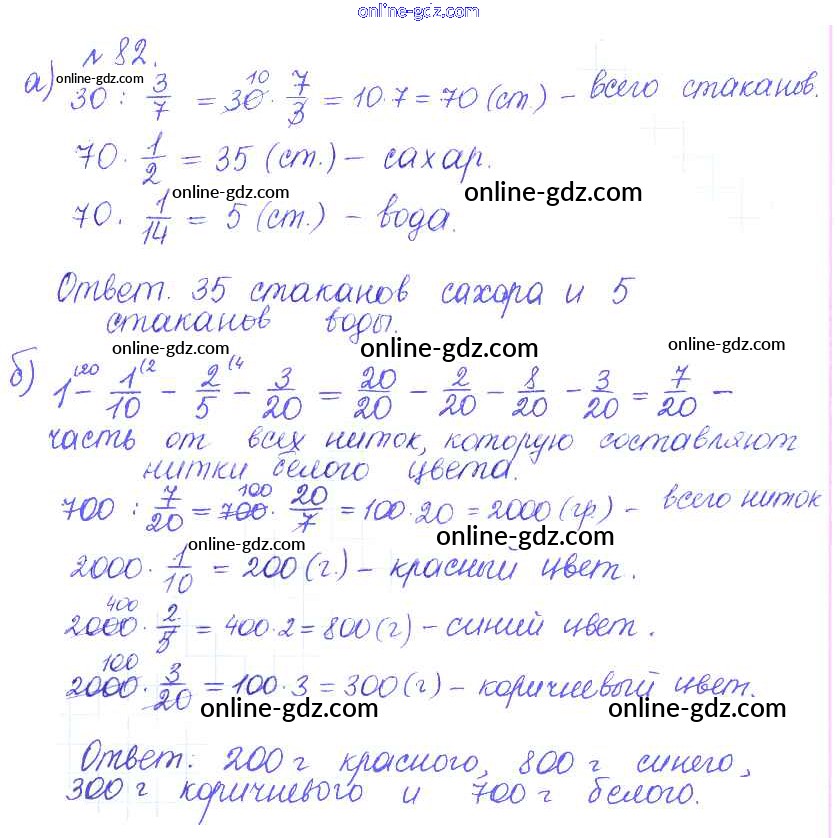 online-gdz.com
№ 82.
а) 30 : 3/7 = 30 10 · 7/3 = 10·7 = 70 (ст.) – всего стаканов.
online-gdz.com online-gdz.com
70 · 1/2 = 35 (ст.) – сахар.
online-gdz.com online-gdz.com
70 · 1/14 = 5 (ст.) – вода.
online-gdz.com
Ответ. 35 стаканов сахора и 5
стаканов воды.
online-gdz.com online-gdz.com online-gdz.com
б) 1(20 – 1/10(2 – 2/5(4 – 3/20 = 20/20 – 2/20 – 8/20 – 3/20 = 7/20 –
часть от всех ниток, которую составляют
нитки белого цвета.
online-gdz.com
700 : 7/20 = 700 100 · 20/7 = 100·20 = 2000 (гр.) – всего ниток
online-gdz.com online-gdz.com online-gdz.com
2000 · 1/10 = 200 (г.) – красный цвет.
2000 400 · 2/5 = 400·2 = 800 (г) – синий цвет.
2000 100 · 3/20 = 100·3 = 300 (г) – коричневый цвет.
online-gdz.com online-gdz.com
Ответ: 200 г красного, 800 г синего,
300 г коричневого и 700 г белого.